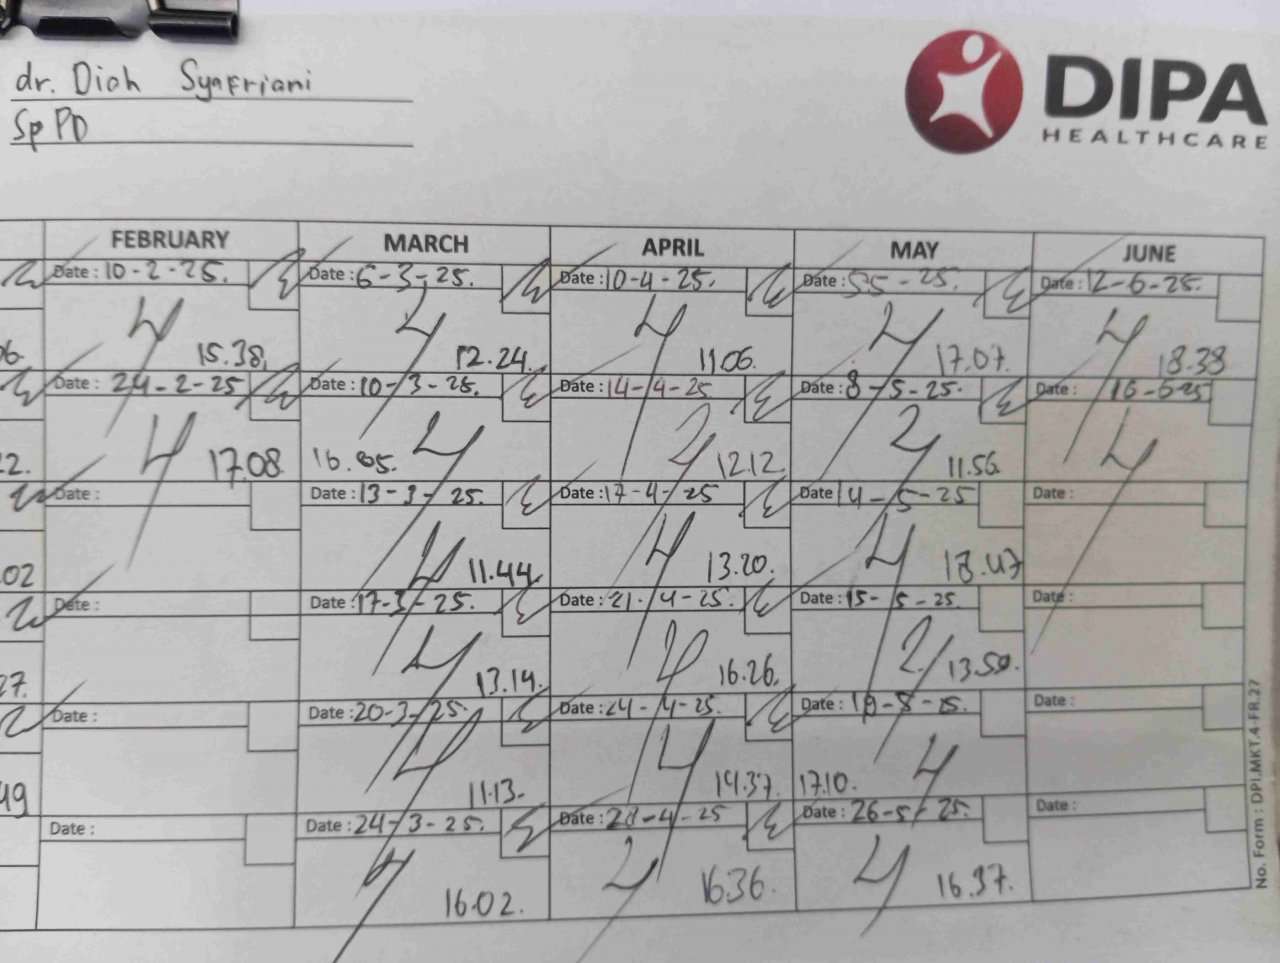 dr. Diah Syafriani
Sp PD
DIPA
HEALTHCARE
FEBRUARY MARCH APRIL MAY JUNE
Date : 10-2-25. Date : 6-3-25. Date : 10-4-25. Date : 5-5-25. Date : 12-6-25.
06. 15.38. 12.24. 11.06. 17.07. 18.38
Date : 24-2-25 Date : 10-3-25. Date : 14-4-25 Date : 8-5-25. Date : 16-6-25
22. 17.08 16.05. 12.12. 11.56
Date : Date : 13-3-25. Date : 17-4-25 Date : 14-5-25 Date :
02 11.44 13.20. 18.47
Date : Date : 17-3-25. Date : 21-4-25. Date : 15-5-25. Date :
27. 13.14. 16.26. 13.50.
Date : Date : 20-3-25. Date : 24-4-25. Date : Date :
49 11.13. 14.37. 17.10.
Date : Date : 24-3-25. Date : 28-4-25 Date : 26-5-25. Date :
16.02. 16.36. 16.37.
No. Form : DPI.MKT.4-FR.27